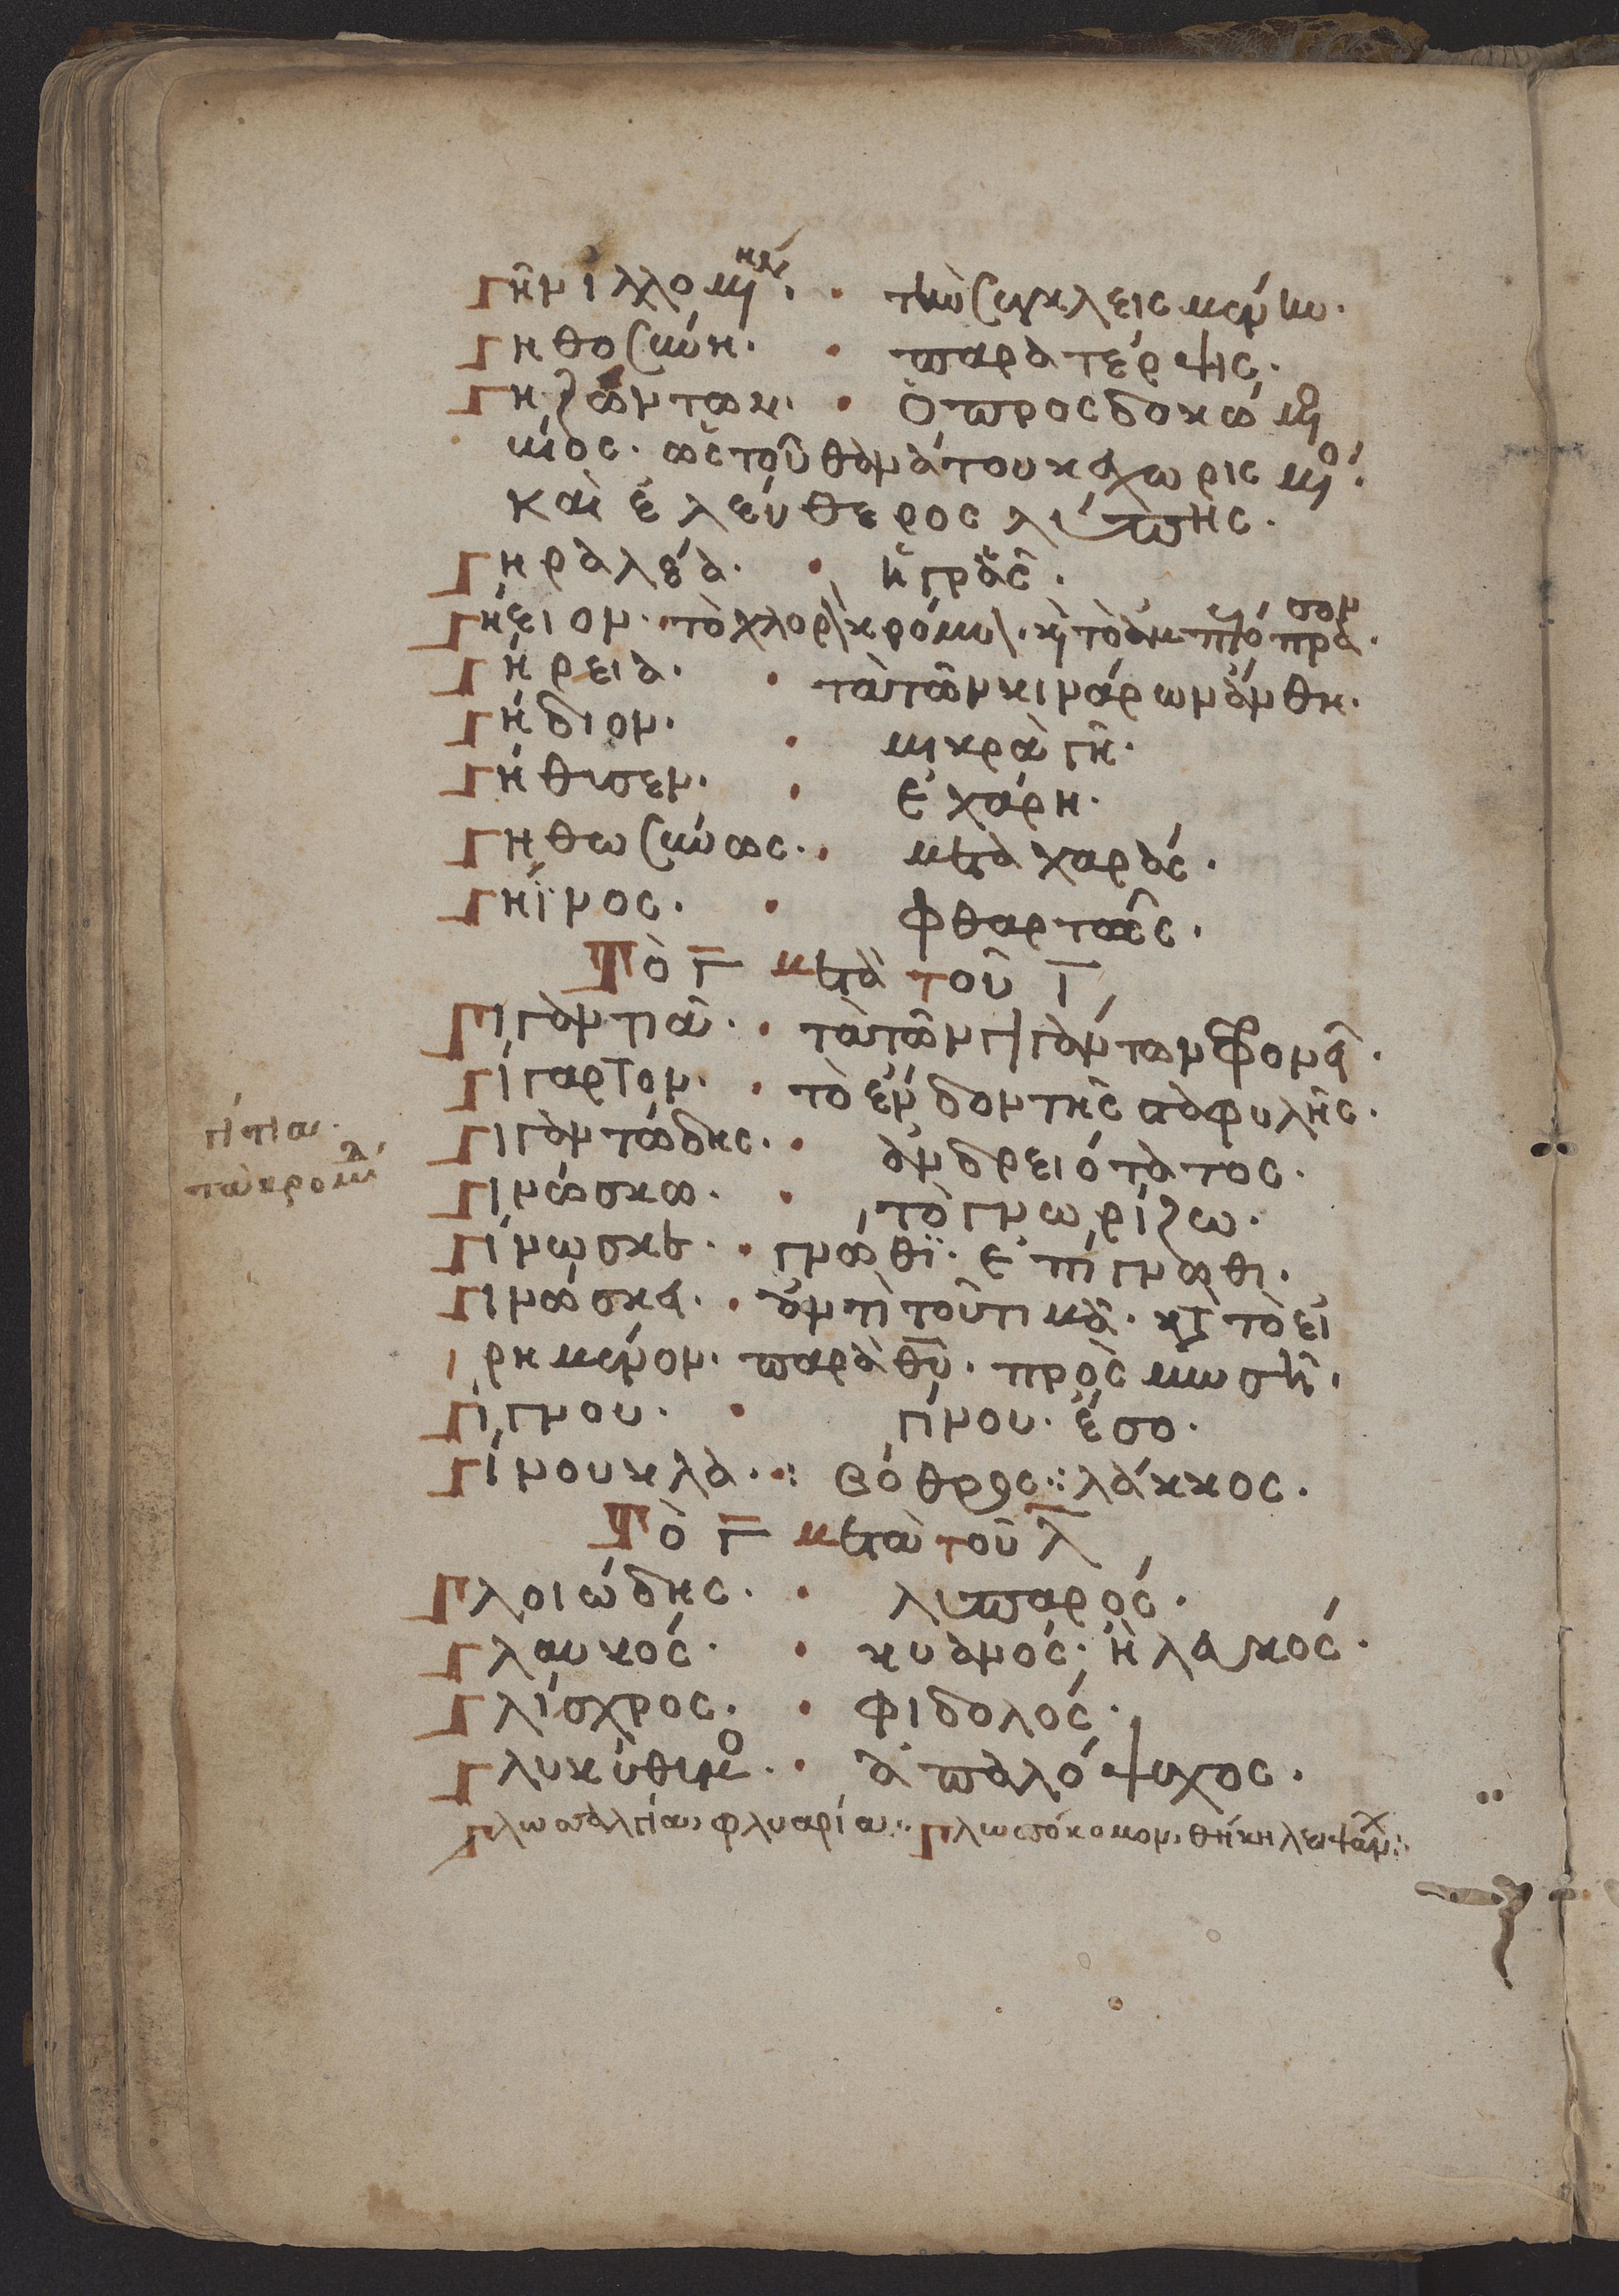 Γηνιλλομένην. τὴν συγκλεισμένην.
Γηθοσύνη. παρὰ τέρψις.
Γηζώντων. ὁ προσδοκώμε
νος. ὡς τοῦ θανάτου καὶ χωρισμός.
Καὶ ἐλεύθερος λύπης.
Γηραλέα. ἡ γραῦς.
Γήειον. τὸ χλορὸν κρόμυον. καὶ τὸ πράσον.
Γήρεια. τὰ τῶν κινάρων ἄνθη.
Γήδιον. μικρὰ γῆ.
Γήθησεν. ἐχάρη.
Γηθωσύνως. μετὰ χαράς.
Γήϊνος. φθαρτὸς.
Τὸ Γ μετὰ τοῦ Ι
Γιγαντιαῖ. τὰ τῶν γιγάντων
Γίγαρτον. τὸ ἔνδον τῆς σταφυλῆς.
Γιγαντώδης. ἀνδρειότατος.
Γινώσκω. τὸ γνωρίζω.
Γίνωσκε. γνῶθϊ. ἐπίγνωθι.
Γινώσκαι. ἀντὶ τοῦ τιμᾶ. κατὰ τὸ εἰ
ρημένον. παρὰ θυ. πρὸς μωσῆ.
Γίγνου. γίνου. ἔσο.
Γίνουκλα. βόθρος: λάκκος.
Τὸ Γ μετὰ τοῦ λ
Γλοιώδης. λιπαρός.
Γλαυκός. κυανός. ἢ λευκός.
Γλίσχρος. φιδολός.
Γλυκύθυμος. ἁπαλόψυχος.
Γλωσσαλγία, φλυαρία: Γλωσσόκομον, θήκη λειψάνων: